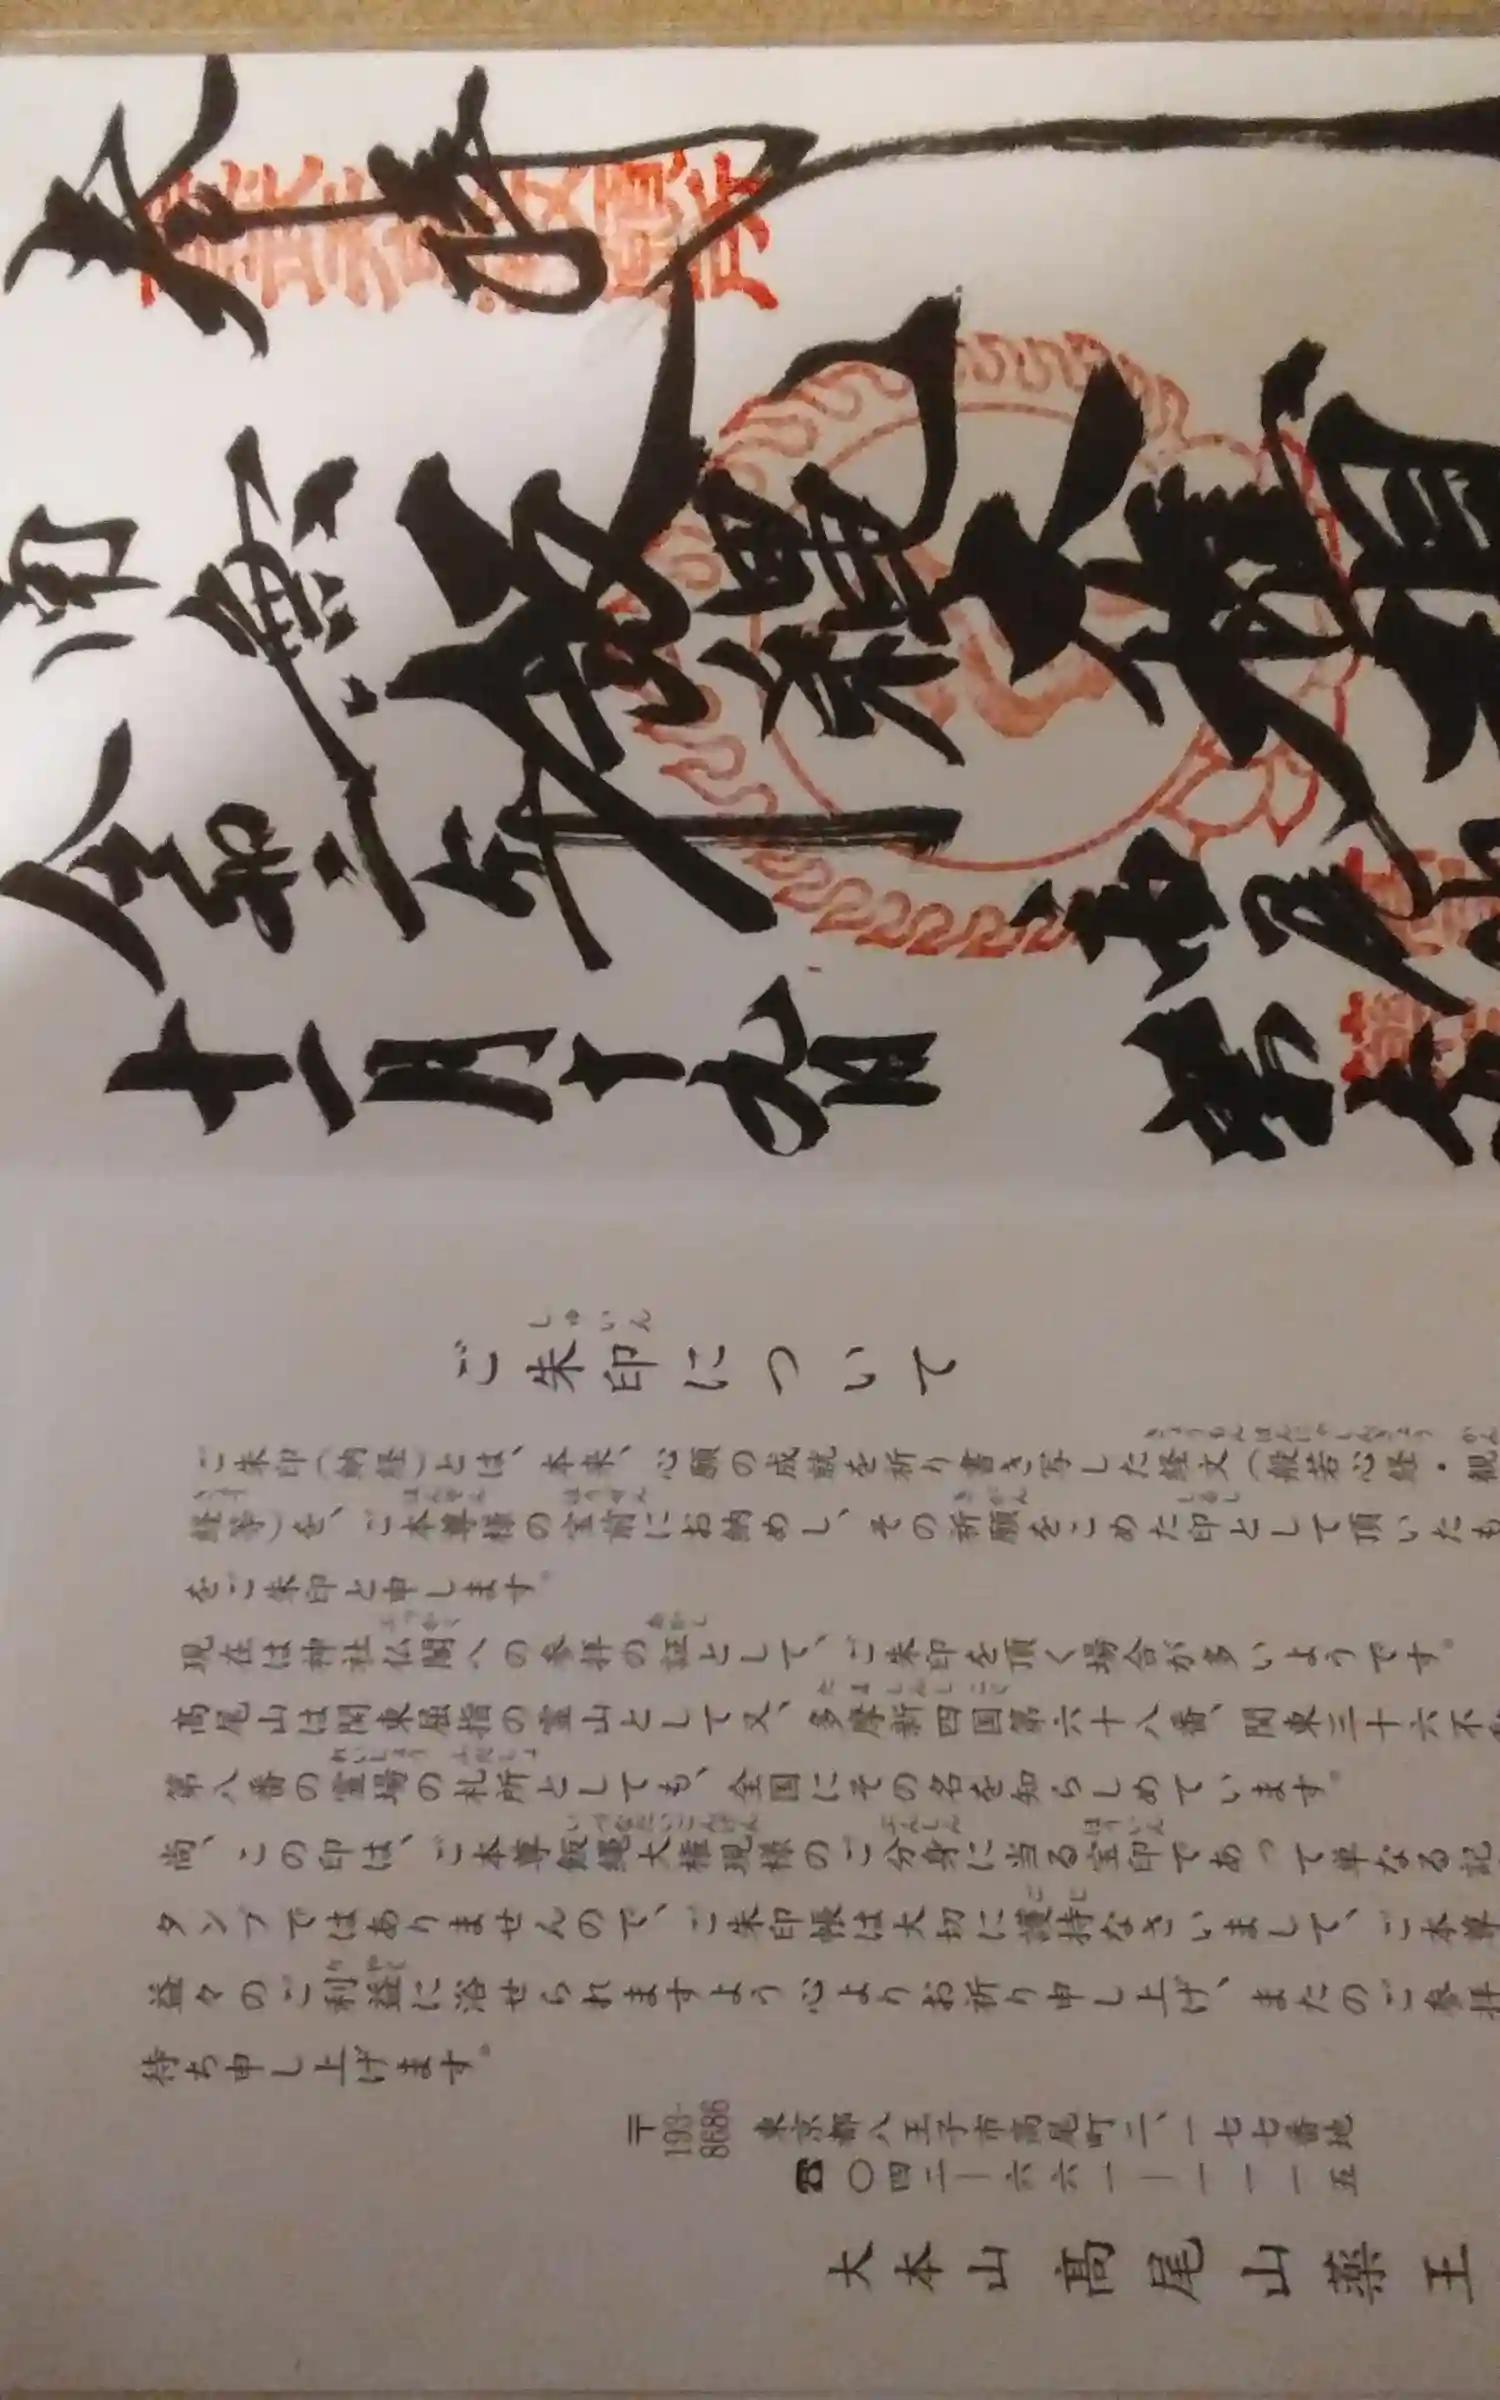 奉拝
飯縄大権現
令和二年
十一月十九日
高尾山
ご朱印について
しゅいん
ご朱印(納経)とは、本来、心願の成就を祈り書き写した経文(般若心経・観
経等)を、ご本尊様の宝前にお納めし、その祈願をこめた印として頂いたも
をご朱印と申します。
現在は神社仏閣への参拝の証として、ご朱印を頂く場合が多いようです。
髙尾山は関東屈指の霊山として又、多摩新四国第六十八番、関東三十六不動
第八番の霊場の札所としても、全国にその名を知らしめています。
尚、この印は、ご本尊飯縄大権現様のご分身に当る宝印であって単なる記
タンプではありませんので、ご朱印帳は大切に護持なさいまして、ご本尊
益々のご利益に浴せられますよう心よりお祈り申し上げ、またのご参拝
待ち申し上げます。
〒193-8686 東京都八王子市高尾町二、一七七番地
☎〇四二ー六六一ー一一一五
大本山髙尾山薬王